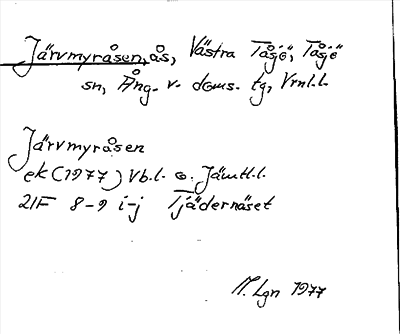 Järvmyråsen, ås, Västra Tåsjö, Tåsjö
sn, Ång. v. doms. tg, Vrnl.l.
Järvmyråsen
ek (1977) Vb.l. o. Jämtl.l.
21F 8-9 i-j Tjädernäset
M. Lgn 1977